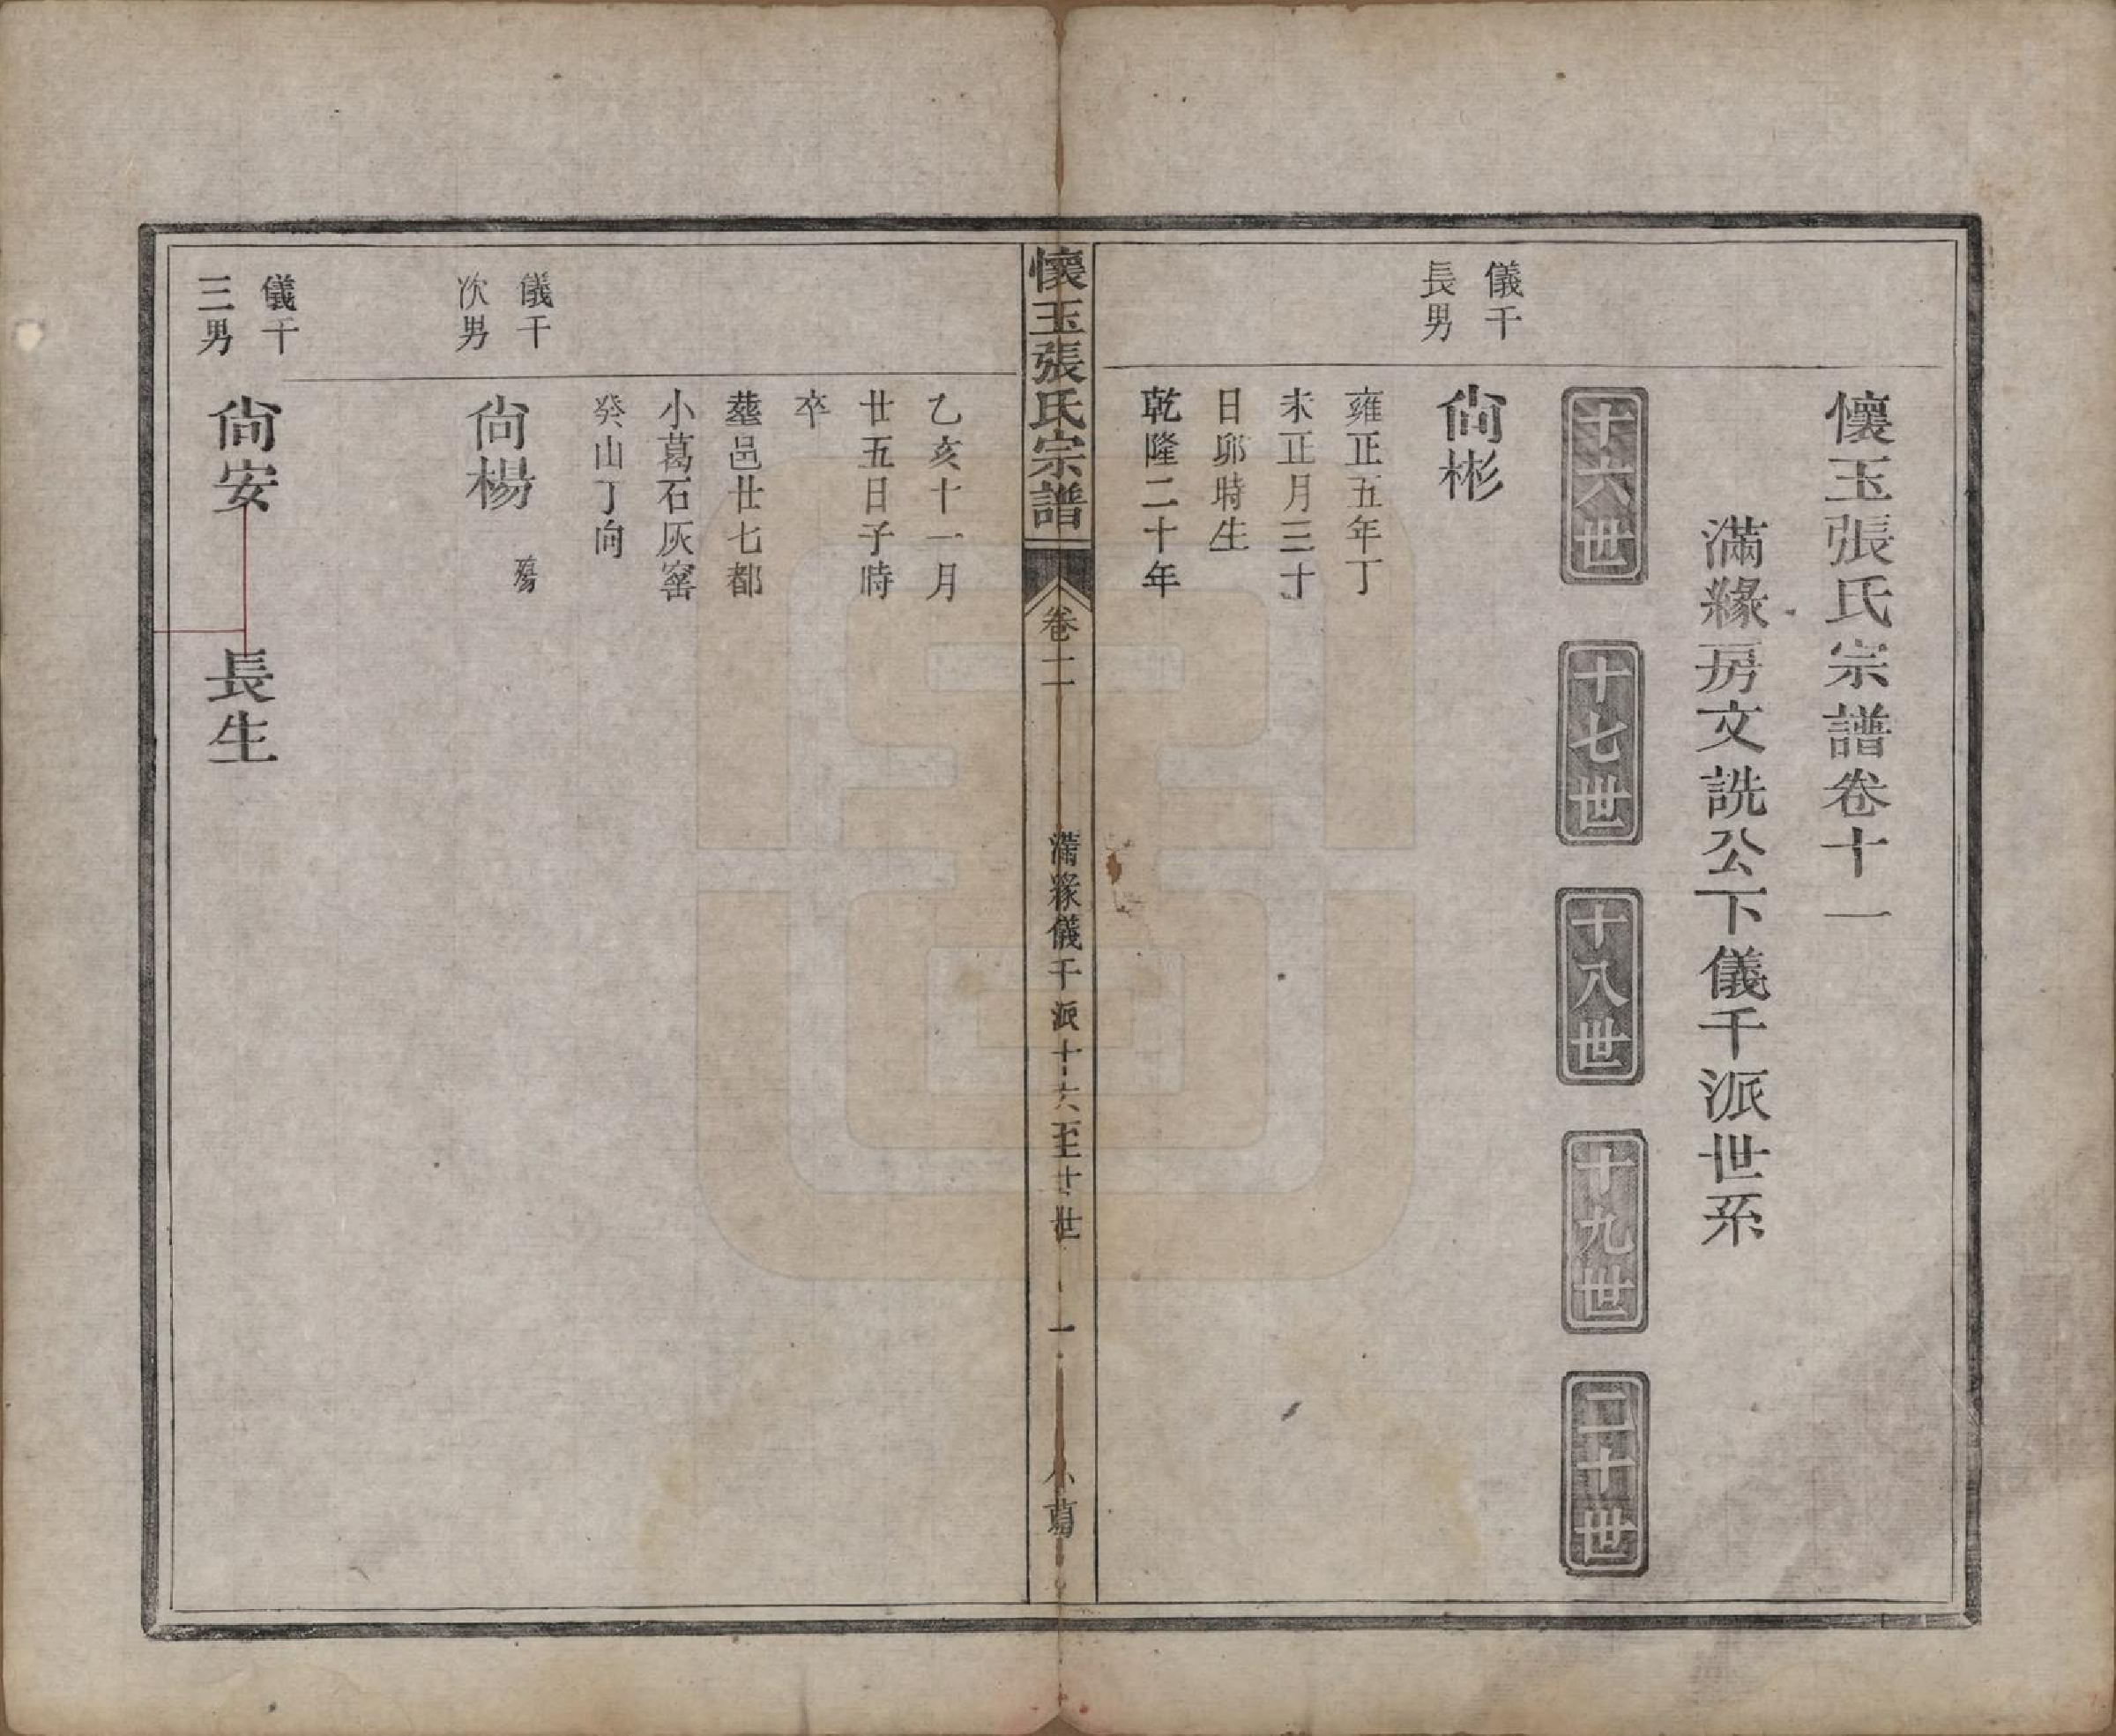 懷玉張氏宗譜卷十一
滿緣房文詵公下儀千派世系
十六世
十七世
十八世
十九世
二十世
儀千
長男
尙彬
雍正五年丁
未正月三十
日夘時生
乾隆二十年
懷玉張氏宗譜
卷十一
滿緣儀千派十六至廿世
一
小葛
乙亥十一月
廿五日子時
卒
塟邑廿七都
小葛石灰窰
癸山丁向
儀千
次男
尙楊
殤
儀千
三男
尙安
長生